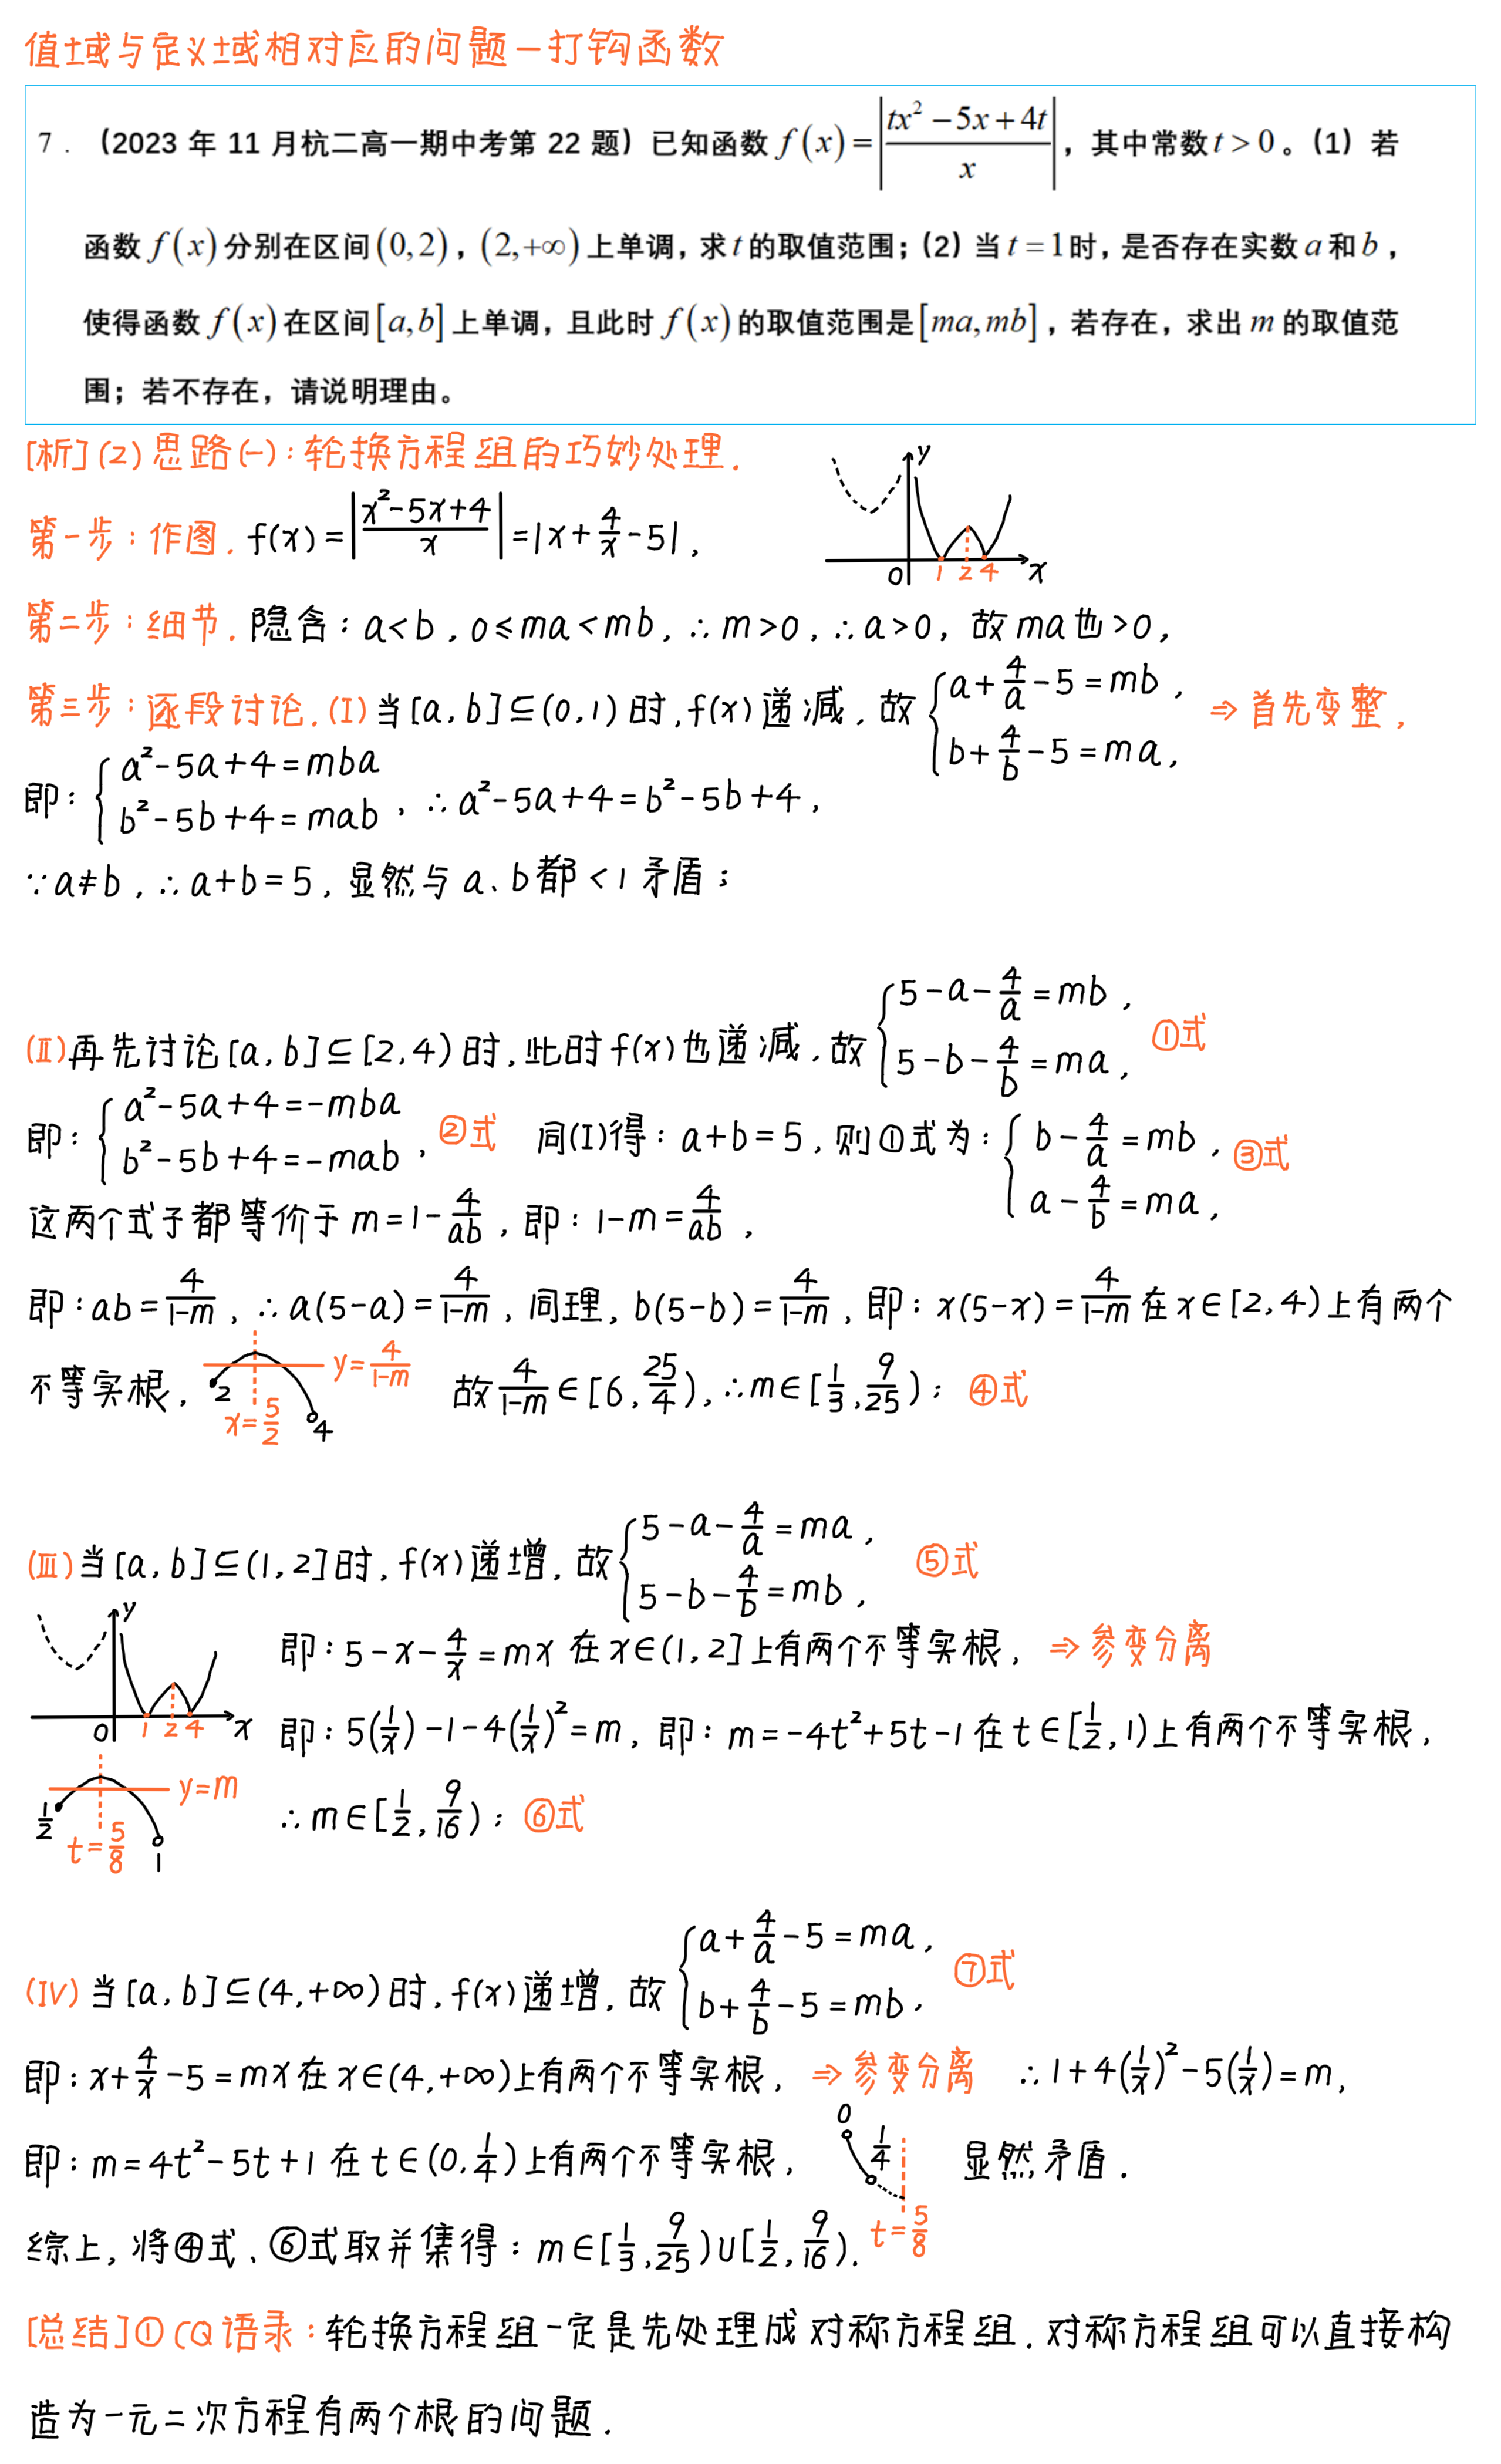 值域与定义域相对应的问题—打钩函数
7．（2023 年 11 月杭二高一期中考第 22 题）已知函数 f(x)=|(tx²-5x+4t)/x|，其中常数 t>0。（1）若
函数 f(x) 分别在区间(0,2)，(2,+∞) 上单调，求 t 的取值范围；（2）当 t=1 时，是否存在实数 a 和 b，
使得函数 f(x) 在区间[a,b] 上单调，且此时 f(x) 的取值范围是[ma,mb]，若存在，求出 m 的取值范
围；若不存在，请说明理由。
[析](2)思路(一)：轮换方程组的巧妙处理．
第一步：作图．f(x)=|(x²-5x+4)/x|=|x+4/x-5|，
y
O 1 2 4 x
第二步：细节．隐含：a<b，0≤ma<mb，∴m>0，∴a>0，故ma也>0，
第三步：逐段讨论．(Ⅰ)当[a,b]⊆(0,1)时，f(x)递减．故{a+4/a-5=mb，b+4/b-5=ma， ⇒首先变整．
即：{a²-5a+4=mba b²-5b+4=mab，∴a²-5a+4=b²-5b+4，
∵a≠b，∴a+b=5，显然与a、b都<1矛盾；
(Ⅱ)再先讨论[a,b]⊆[2,4)时，此时f(x)也递减．故{5-a-4/a=mb，5-b-4/b=ma， ①式
即：{a²-5a+4=-mba b²-5b+4=-mab，②式 同(Ⅰ)得：a+b=5，则①式为：{b-4/a=mb，a-4/b=ma，③式
这两个式子都等价于m=1-4/ab，即：1-m=4/ab，
即：ab=4/(1-m)，∴a(5-a)=4/(1-m)，同理，b(5-b)=4/(1-m)，即：x(5-x)=4/(1-m)在x∈[2,4)上有两个
不等实根， 2 x=5/2 4 y=4/(1-m) 故4/(1-m)∈[6,25/4)，∴m∈[1/3,9/25)；④式
(Ⅲ)当[a,b]⊆(1,2]时，f(x)递增．故{5-a-4/a=ma，5-b-4/b=mb， ⑤式
y
O 1 2 4 x
即：5-x-4/x=mx在x∈(1,2]上有两个不等实根，⇒参变分离
即：5(1/x)-1-4(1/x)²=m，即：m=-4t²+5t-1在t∈[1/2,1)上有两个不等实根，
1/2 t=5/8 1 y=m ∴m∈[1/2,9/16)；⑥式
(Ⅳ)当[a,b]⊆(4,+∞)时，f(x)递增．故{a+4/a-5=ma，b+4/b-5=mb， ⑦式
即：x+4/x-5=mx在x∈(4,+∞)上有两个不等实根，⇒参变分离 ∴1+4(1/x)²-5(1/x)=m，
即：m=4t²-5t+1在t∈(0,1/4)上有两个不等实根， 0 1/4 t=5/8 显然矛盾．
综上，将④式、⑥式取并集得：m∈[1/3,9/25)∪[1/2,9/16)．
[总结]①CQ语录：轮换方程组一定是先处理成对称方程组．对称方程组可以直接构
造为一元二次方程有两个根的问题．